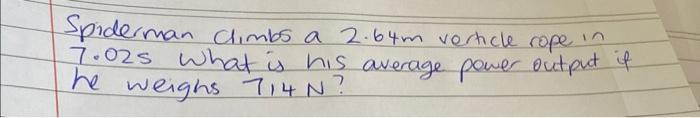 Spiderman climbs a 2.64m verticle rope in
7.02s What is his average power output if
he weighs 714 N?